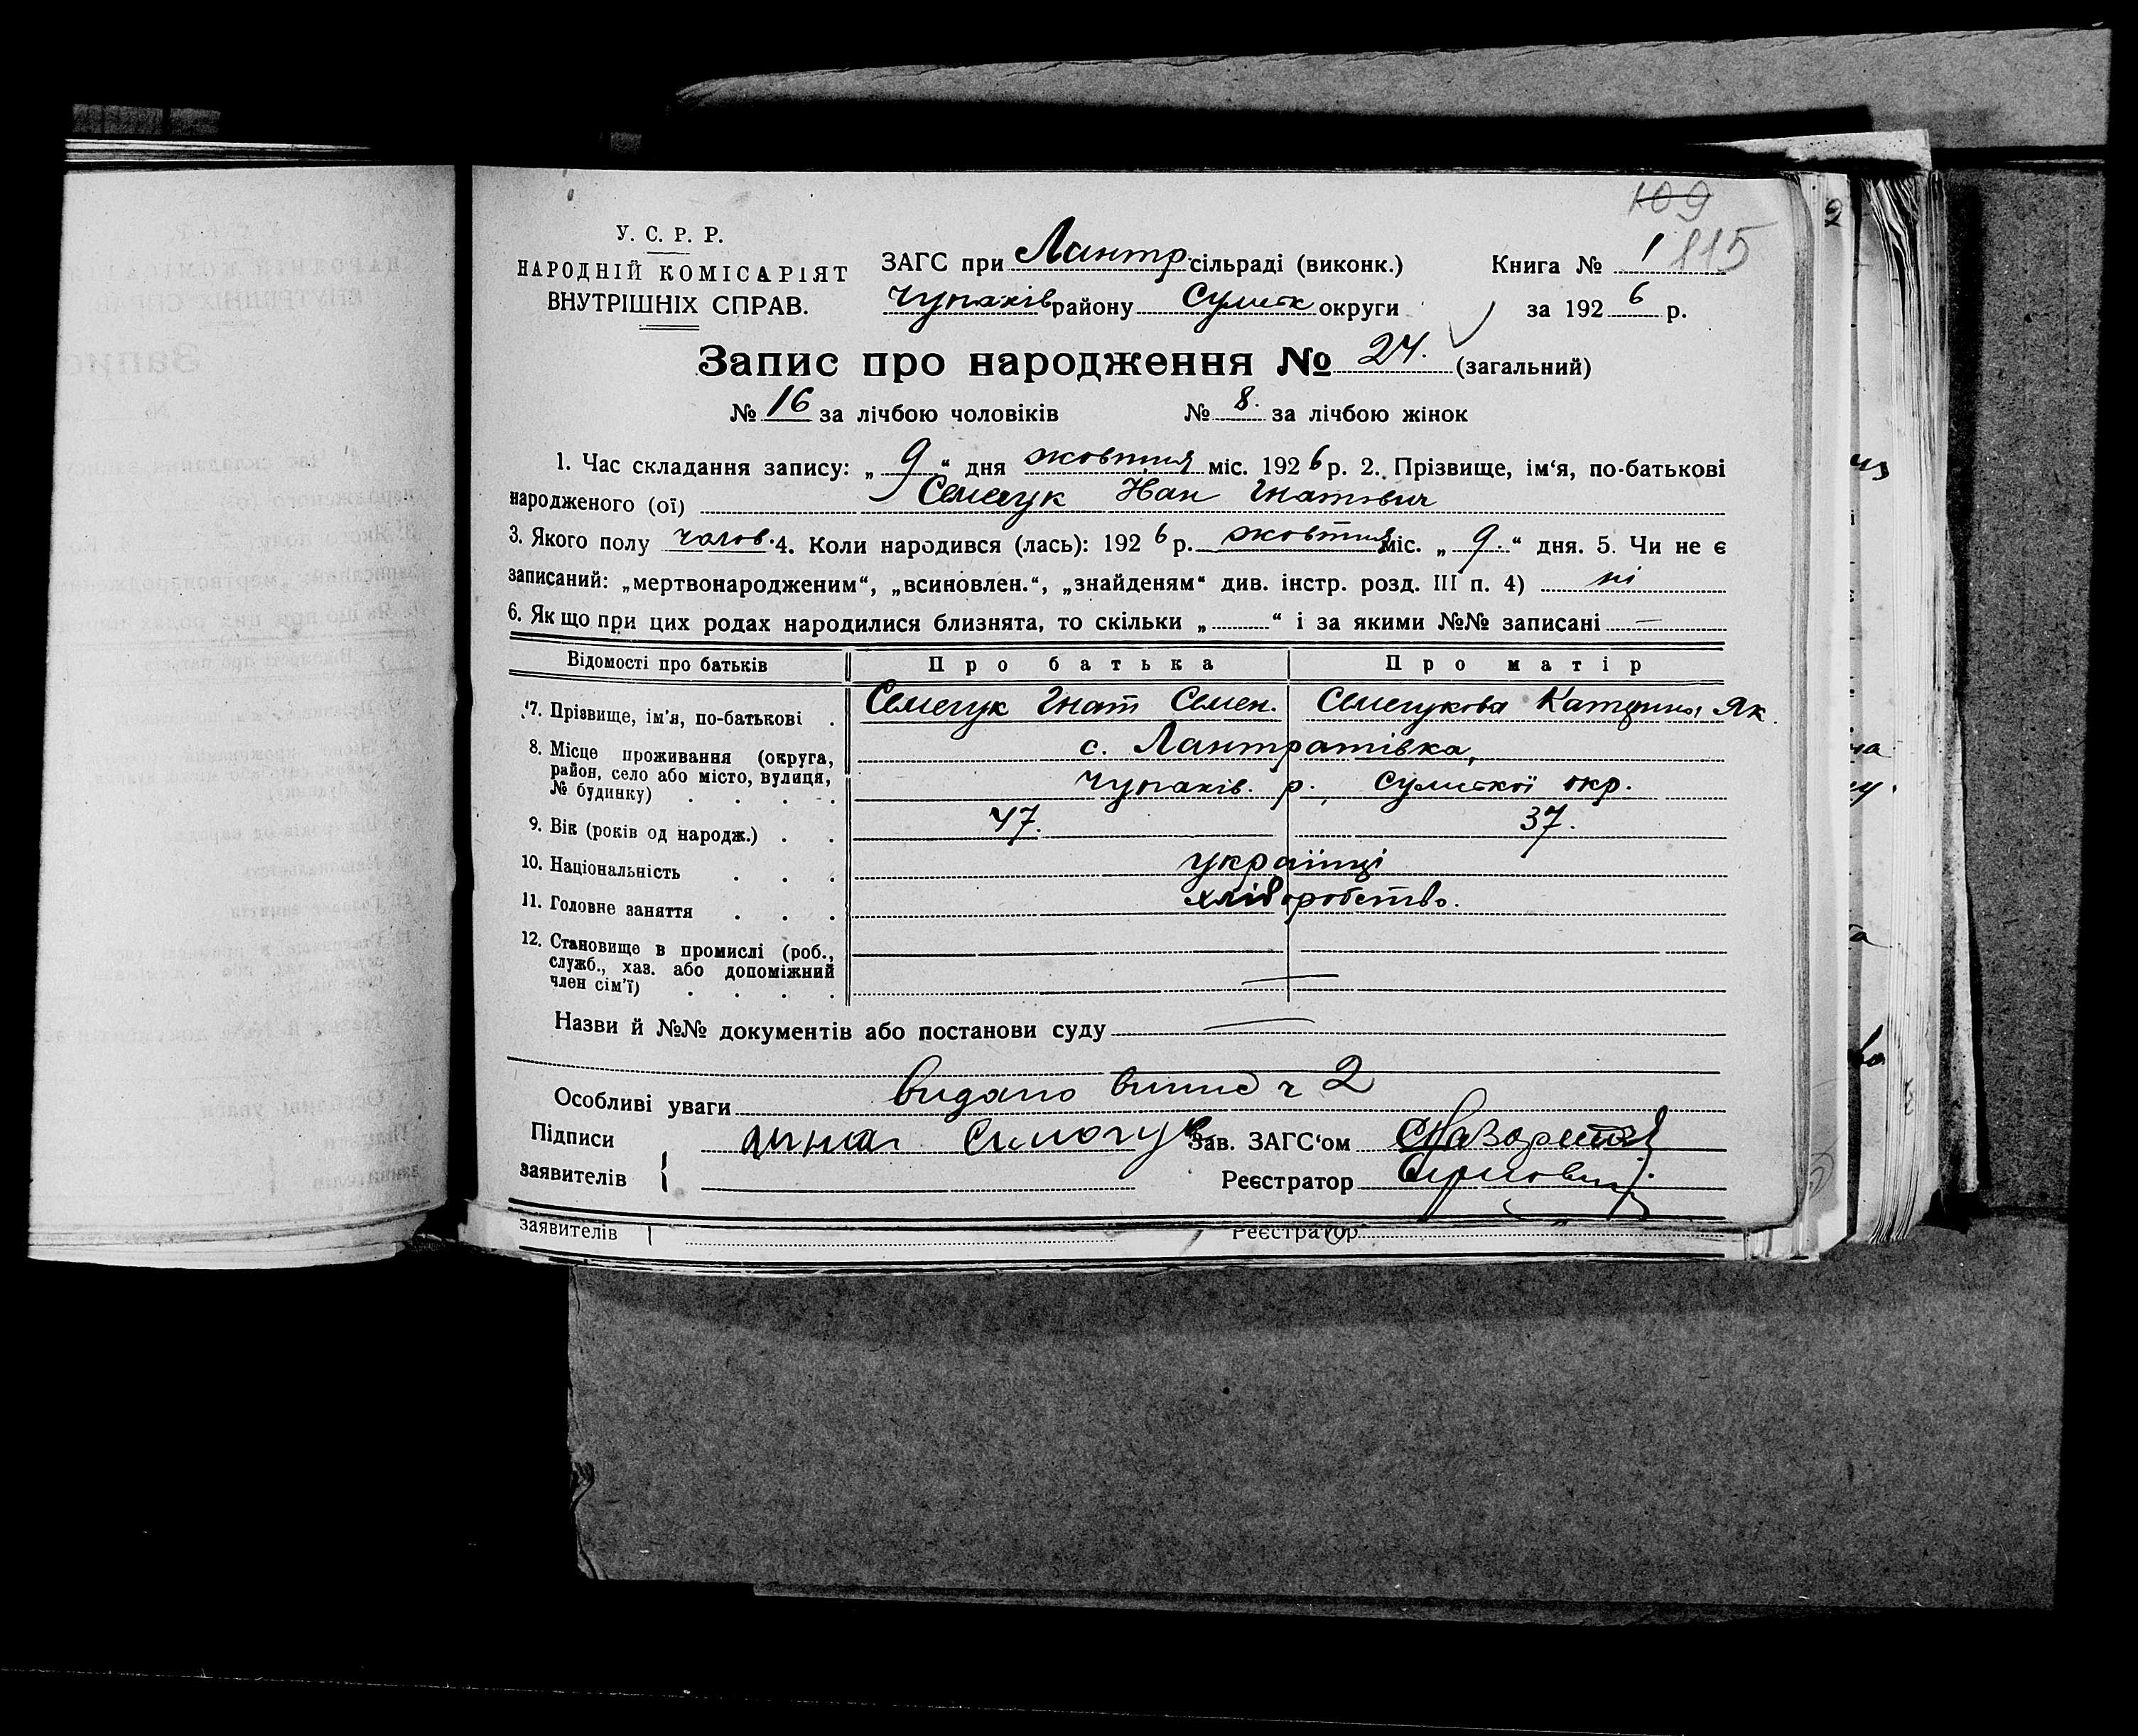 109
У. С. Р. Р.
НАРОДНІЙ КОМІСАРІЯТ
ВНУТРІШНІХ СПРАВ.
ЗАГС при Лантр сільраді (виконк.)
Чупахів району Сумськ округи
Книга № 1 115
за 1926 р.
Запис про народження № 24. (загальний)
№ 16 за лічбою чоловіків № 8. за лічбою жінок
1. Час складання запису: „ 9 “ дня жовтня міс. 1926 р. 2. Прізвище, ім‘я, по-батькові
народженого (ої) Семегук Іван Гнатович
3. Якого полу чолов. 4. Коли народився (лась): 1926 р. жовтня міс. „ 9. “ дня. 5. Чи не є
записаний: „мертвонародженим“, „всиновлен.“, „знайденям“ див. інстр. розд. III п. 4) ні
6. Як що при цих родах народилися близнята, то скільки „ “ і за якими №№ записані —
Відомості про батьків Про батька Про матір
7. Прізвище, ім‘я, по-батькові . Семегук Гнат Семен. Семегукова Катерина Як.
8. Місце проживання (округа,
район, село або місто, вулиця,
№ будинку) . . . .
с. Лантратівка,
Чупахів. р. Сумської окр.
9. Вік (років од народж.) . . 47. 37.
10. Національність . . . українці
11. Головне заняття . . . хліборобство.
12. Становище в промислі (роб.,
служб., хаз. або допоміжний
член сім‘ї) . . . . —
Назви й №№ документів або постанови суду —
Особливі уваги видано випис ч 2
Підписи
заявителів
Зав. ЗАГС‘ом
Реєстратор
заявителів Реєстратор